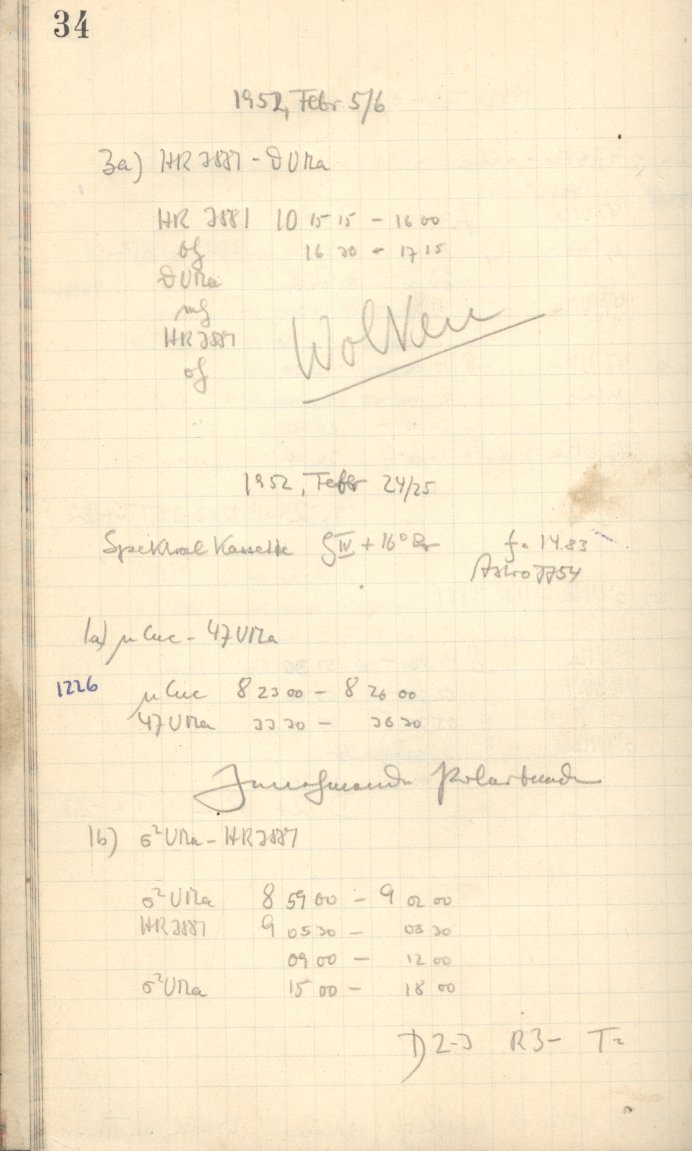 34
1952, Febr 5/6
3a) HR 3881 - ϑ UMa
HR 3881 10 15 15 - 16 00
of
16 30 - 17 15
ϑ UMa
mf
HR 3881
of
Wolken
1952, Febr 24/25
Spektral Kassette
+ 16°
f = 14.83
Astro
1a) μ Cnc - 47 UMa
1226
μ Cnc 8 23 00 - 8 26 00
47 UMa 33 30 - 36 30
1b) σ² UMa - HR 3881
σ² UMa 8 59 00 - 9 02 00
HR 3881 9 05 30 - 08 30
09 00 - 12 00
σ² UMa 15 00 - 18 00
D 2-3 R3- T2